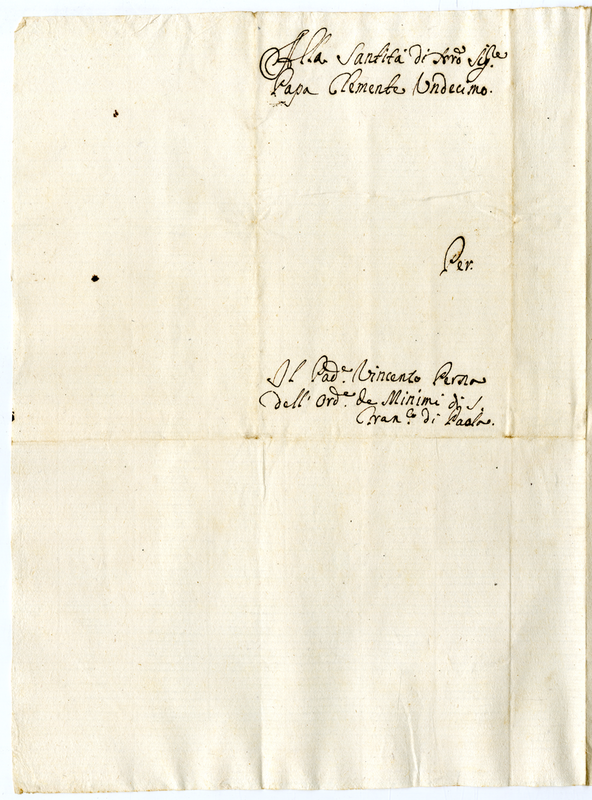 Alla Santità di Nrõ Sig.re
Papa Clemente Undecimo.
Per.
Il Pad.e Vincento
dell' Ord.e de Minimi di S.
Fran.co di Paola.